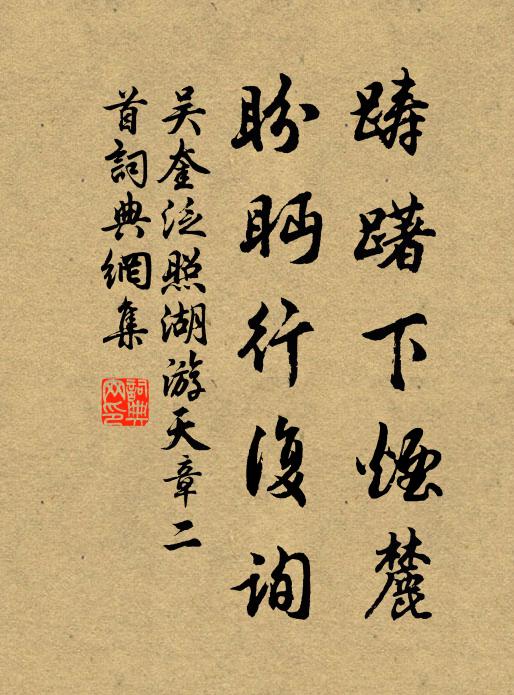 踌躇下烟麓
盼眄行復询
吴奎泛照湖游天章二
首詞典網集
詞典
网印